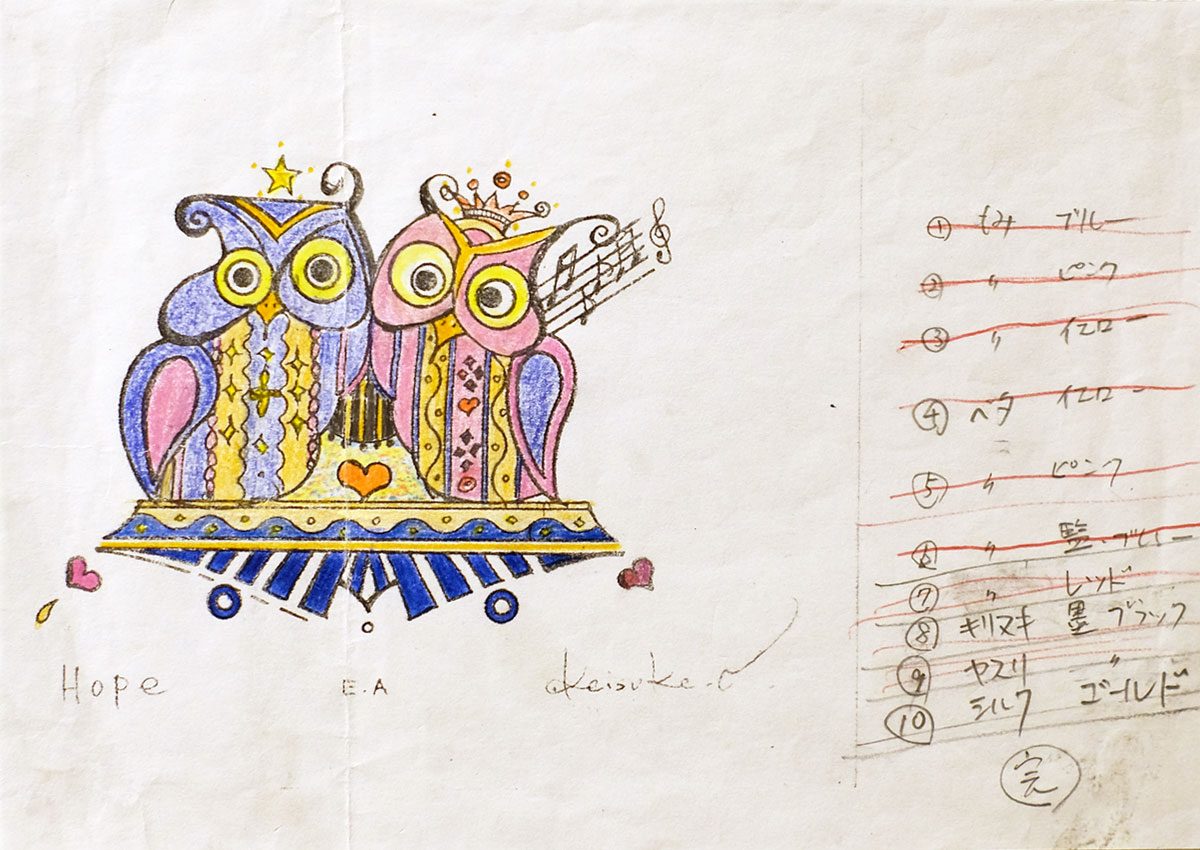 Hope
E.A
Keisuke.
① もみ ブルー
② 〃 ピンク
③ 〃 イエロー
④ ベタ イエロー
⑤ 〃 ピンク
⑥ 〃 ブルー
⑦ 〃 レッド
⑧ キリヌキ 墨 ブラック
⑨ ヤスリ 〃
⑩ シルク ゴールド
完